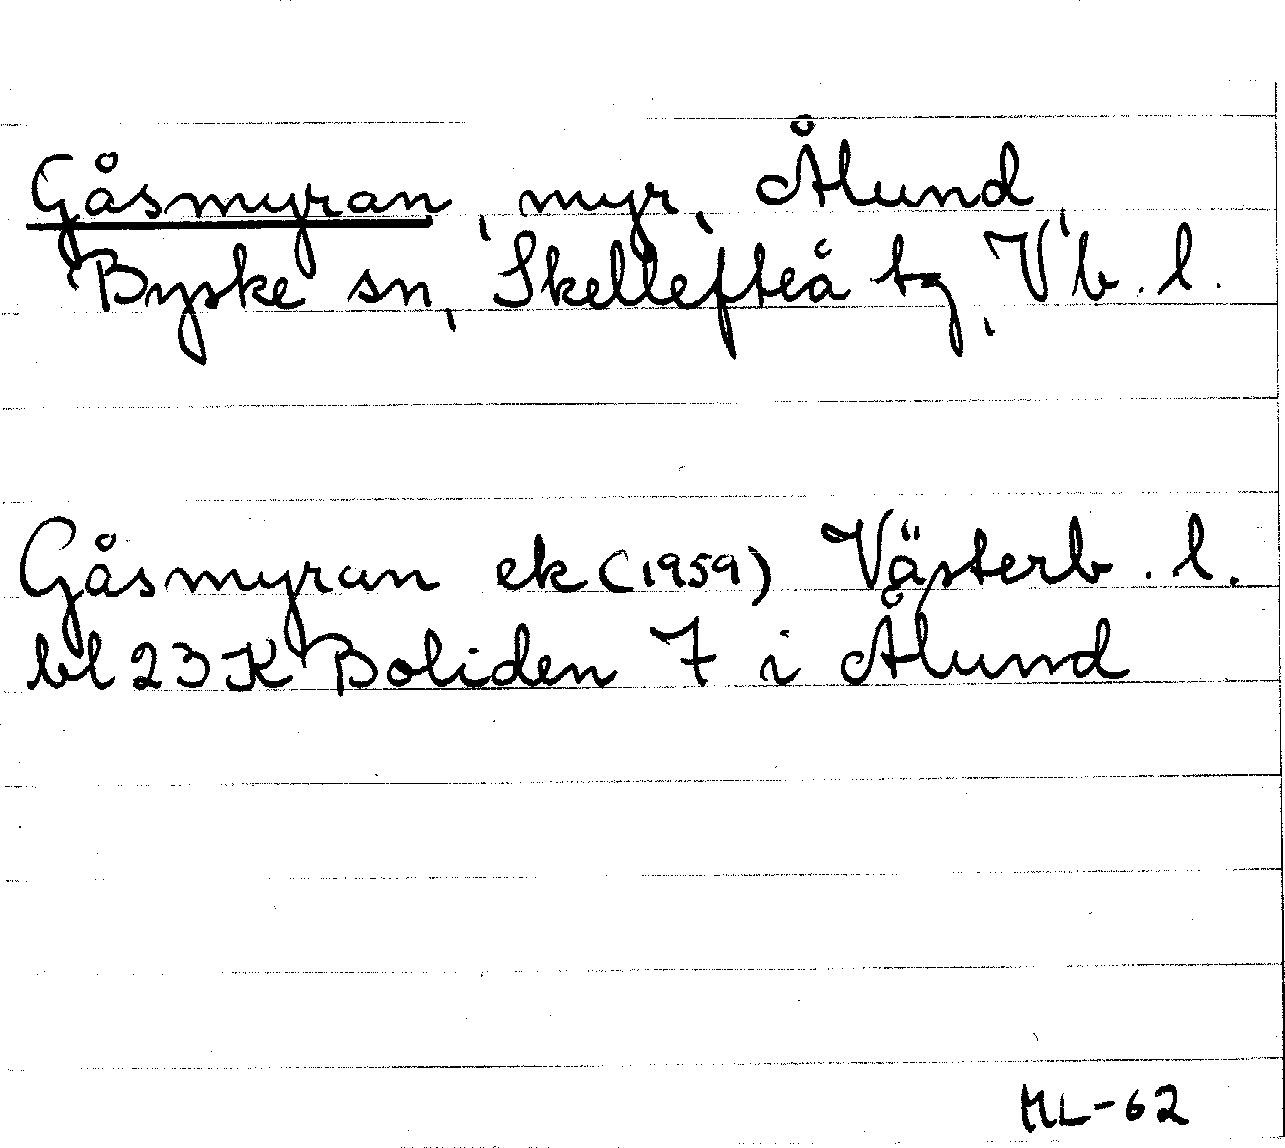 Gåsmyran, myr, Ålund,
Byske sn, Skellefteå tg, Vb. l.
Gåsmyran ek (1959) Västerb. l.
bl 23 K Boliden 7 i Ålund
ML-62